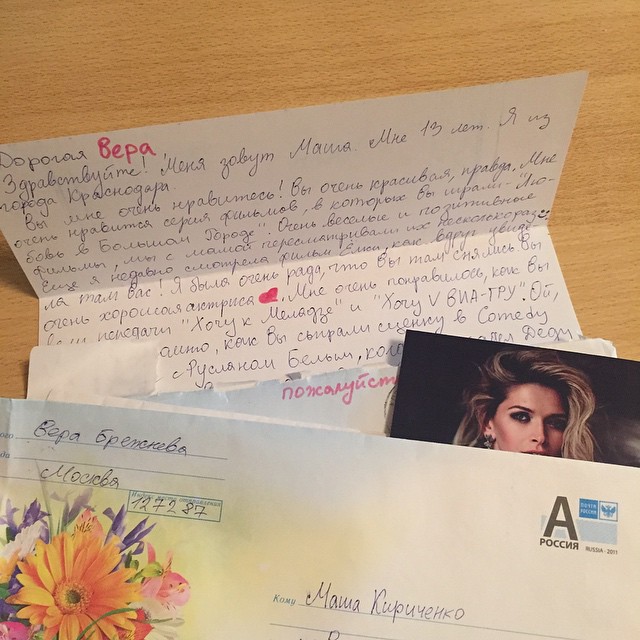 Дорогая Вера
Здравствуйте! Меня зовут Маша. Мне 13 лет. Я из
города Краснодара.
Вы мне очень нравитесь! Вы очень красивая, правда. Мне
очень нравится серия фильмов, в которых Вы играли - "Лю-
бовь в Большом Городе". Очень веселые и позитивные
фильмы, мы с мамой пересматривали их несколько раз.
Ещё я недавно смотрела фильм Ёлки, как вдруг увиде-
ла там Вас! Я была очень рада, что Вы там снялись Вы
очень хорошая актриса. Мне очень понравилось, как Вы
вели передачи "Хочу к Меладзе" и "Хочу V ВИА-ГРУ". Ой,
как Вы сыграли сценку в Comedy
с Русланом Белым,
пожалуйст
Вера Брежнева
Москва
127287
А
РОССИЯ
ПОЧТА РОССИИ
RUSSIA - 2011
Кому Маша Кириченко